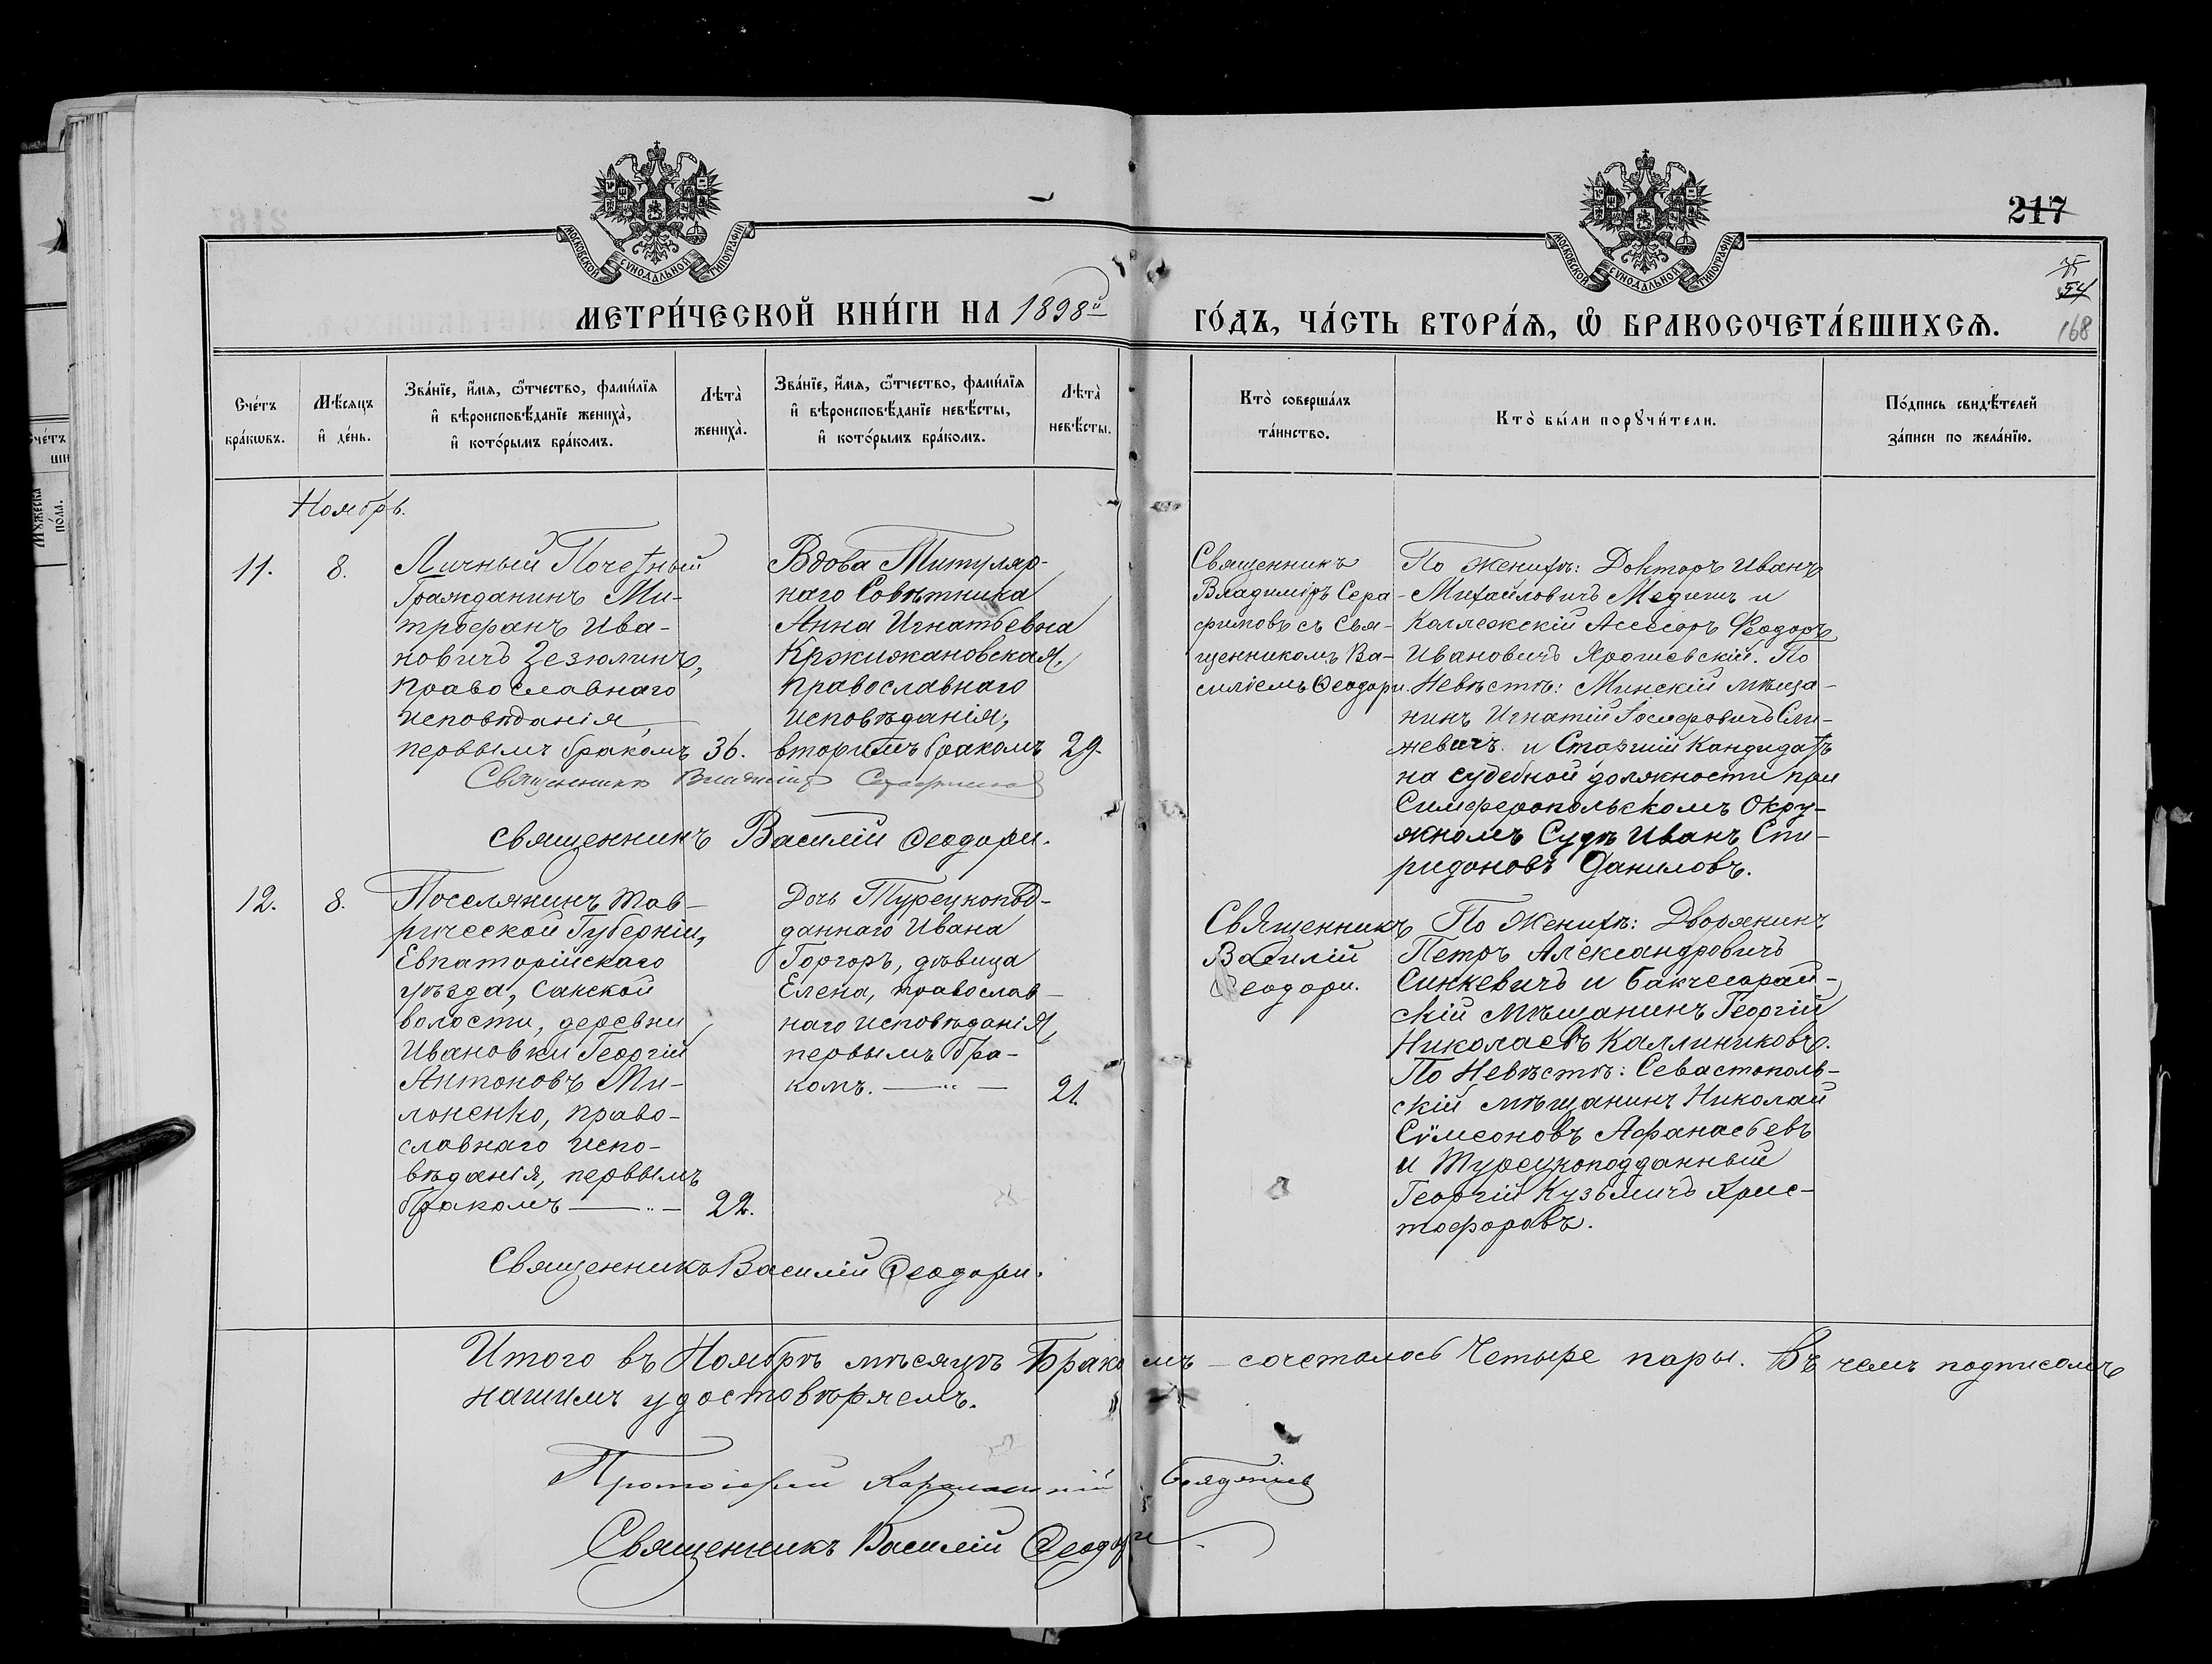 МОСКОВСКОЙ СѴНОДАЛЬНОЙ ТИПОГРАФІИ
МОСКОВСКОЙ СѴНОДАЛЬНОЙ ТИПОГРАФІИ
217
54
168
МЕТРИ́ЧЕСКОЙ КНИ́ГИ НА 1898й
ГО́ДЪ, ЧА́СТЬ ВТОРА́Ѧ, Ѽ БРАКОСОЧЕТА́ВШИХСѦ.
Сче́тъ
бра́кѡвъ.
Мѣ́сяцъ
и҆ де́нь.
Зва́нїе, и҆́мѧ, ѻ҆́тчество, фами́лїѧ
и҆ вѣроисповѣ́данїе жениха̀,
и҆ кото́рымъ бра́комъ.
Лѣта̀
жениха̀.
Зва́нїе, и҆́мѧ, ѻ҆́тчество, фами́лїѧ
и҆ вѣроисповѣ́данїе невѣ́сты,
и҆ кото́рымъ бра́комъ.
Лѣта̀
невѣ́сты.
Кто̀ соверша́лъ
та́инство.
Кто̀ бы́ли порꙋчи́тели.
По́дпись свидѣ́телей
за́писи по жела́нїю.
Ноябрь.
11.
8.
Личный Почетный
Гражданинъ Ми-
трофанъ Ива-
новичъ Зезюлинъ,
православнаго
исповѣданія,
первымъ бракомъ
36.
Вдова Титуляр-
наго Совѣтника
Анна Игнатьевна
Кржижановская,
православнаго
исповѣданія,
вторымъ бракомъ
29.
Священникъ
Владиміръ Сера-
фимовъ съ Свя-
щенникомъ Ва-
силіемъ Ѳеодори.
По Женихѣ: Докторъ Иванъ
Михайловичъ Медишъ и
Коллежскій Ассесоръ Ѳеодоръ
Ивановичъ Ярошевскій. По
Невѣстѣ: Минскій мѣща-
нинъ Игнатій Іосифовичъ Сли-
жевичъ и Старшій Кандидатъ
на судебной должности при
Симферопольскомъ Окру-
жномъ Судѣ Иванъ Спи-
ридоновъ Даниловъ.
Священникъ Владиміръ Серафимовъ
Священникъ Василій Ѳеодори.
12.
8.
Поселянинъ Тав-
рической Губерніи,
Евпаторійскаго
уѣзда, Сакской
волости, деревни
Ивановки Георгій
Антоновъ Ми-
лоненко, право-
славнаго испо-
вѣданія, первымъ
бракомъ
22.
Дочь Турецкопод-
даннаго Ивана
Горгоръ, дѣвица
Елена, православ-
наго исповѣданія,
первымъ бра-
комъ.
21.
Священникъ
Василій
Ѳеодори.
По Женихѣ: Дворянинъ
Петръ Александровичъ
Синкевичъ и Бакчесарай-
скій мѣщанинъ Георгій
Николаевъ Каллиниковъ.
По Невѣстѣ: Севастополь-
скій мѣщанинъ Николай
Сѵмеоновъ Афанасьевъ
и Турецкоподданный
Георгій Кузьмичъ Хрис-
тофоровъ.
Священникъ Василій Ѳеодори.
Итого въ Ноябрѣ мѣсяцѣ Бракомъ сочеталось Четыре пары. Въ чемъ подписомъ
нашимъ удостовѣряемъ.
Протоіерей
Священникъ Василій Ѳеодори